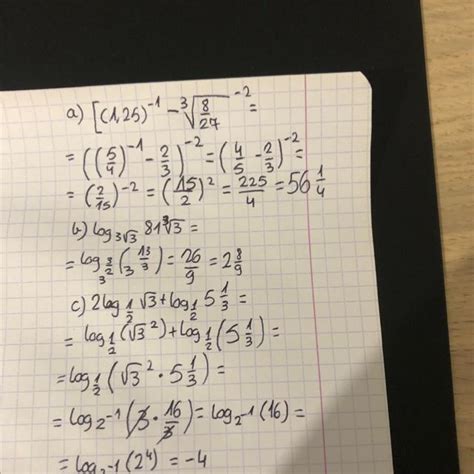 a) [(1,25)⁻¹ - ∛(8/27)⁻² =
= ((5/4)⁻¹ - 2/3)⁻² = (4/5 - 2/3)⁻² =
= (2/15)⁻² = (15/2)² = 225/4 = 56 1/4
b) log_{3√3} 81∛3 =
= log_{3^{3/2}} (3^{13/3}) = 26/9 = 2 8/9
c) 2log_{1/2} √3 + log_{1/2} 5 1/3 =
= log_{1/2} (√3²) + log_{1/2} (5 1/3) =
= log_{1/2} (√3² · 5 1/3) =
= log_{2⁻¹} (3 · 16/3) = log_{2⁻¹} (16) =
= log_{2⁻¹} (2⁴) = -4